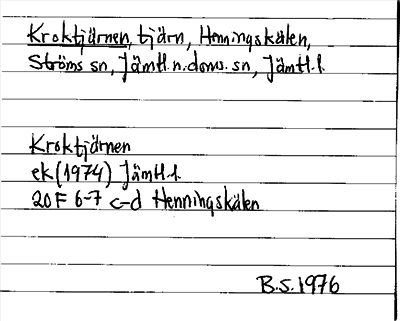 Kroktjärnen, tjärn, Henningskälen,
Ströms sn, Jämtl.n.doms.sn, Jämtl.l.
Kroktjärnen
ek(1974) Jämtl.l.
20F 6-7 c-d Henningskälen
B.S.1976